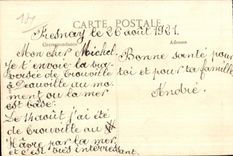 CARTE POSTALE
Fresnay le 26 août 1921.
Correspondance
Adresse
Mon cher Michel.
Je t'envoie la tra
versée de Trouville
à Deauville au mo
ment ou la mer
est basse.
Le 14 août j'ai été
de Trouville au
Hâvre par la mer
et c'est très intéressant.
Bonne santé pour
toi et pour ta famille
André.